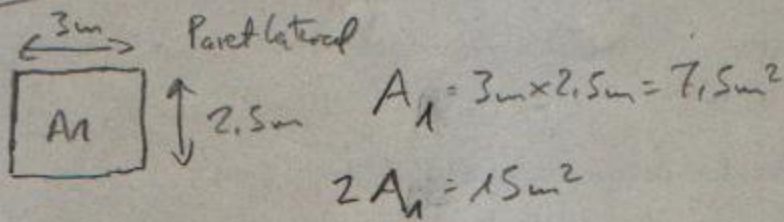 3m Paret lateral
A1 2.5m A1 = 3m×2.5m = 7,5m²
2A1 = 15m²